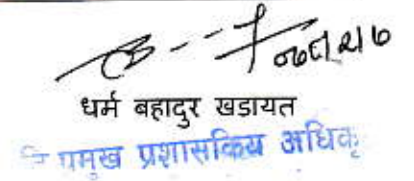 धर्म बहादुर खडायत
प्रमुख प्रशासकिय अधिकृ